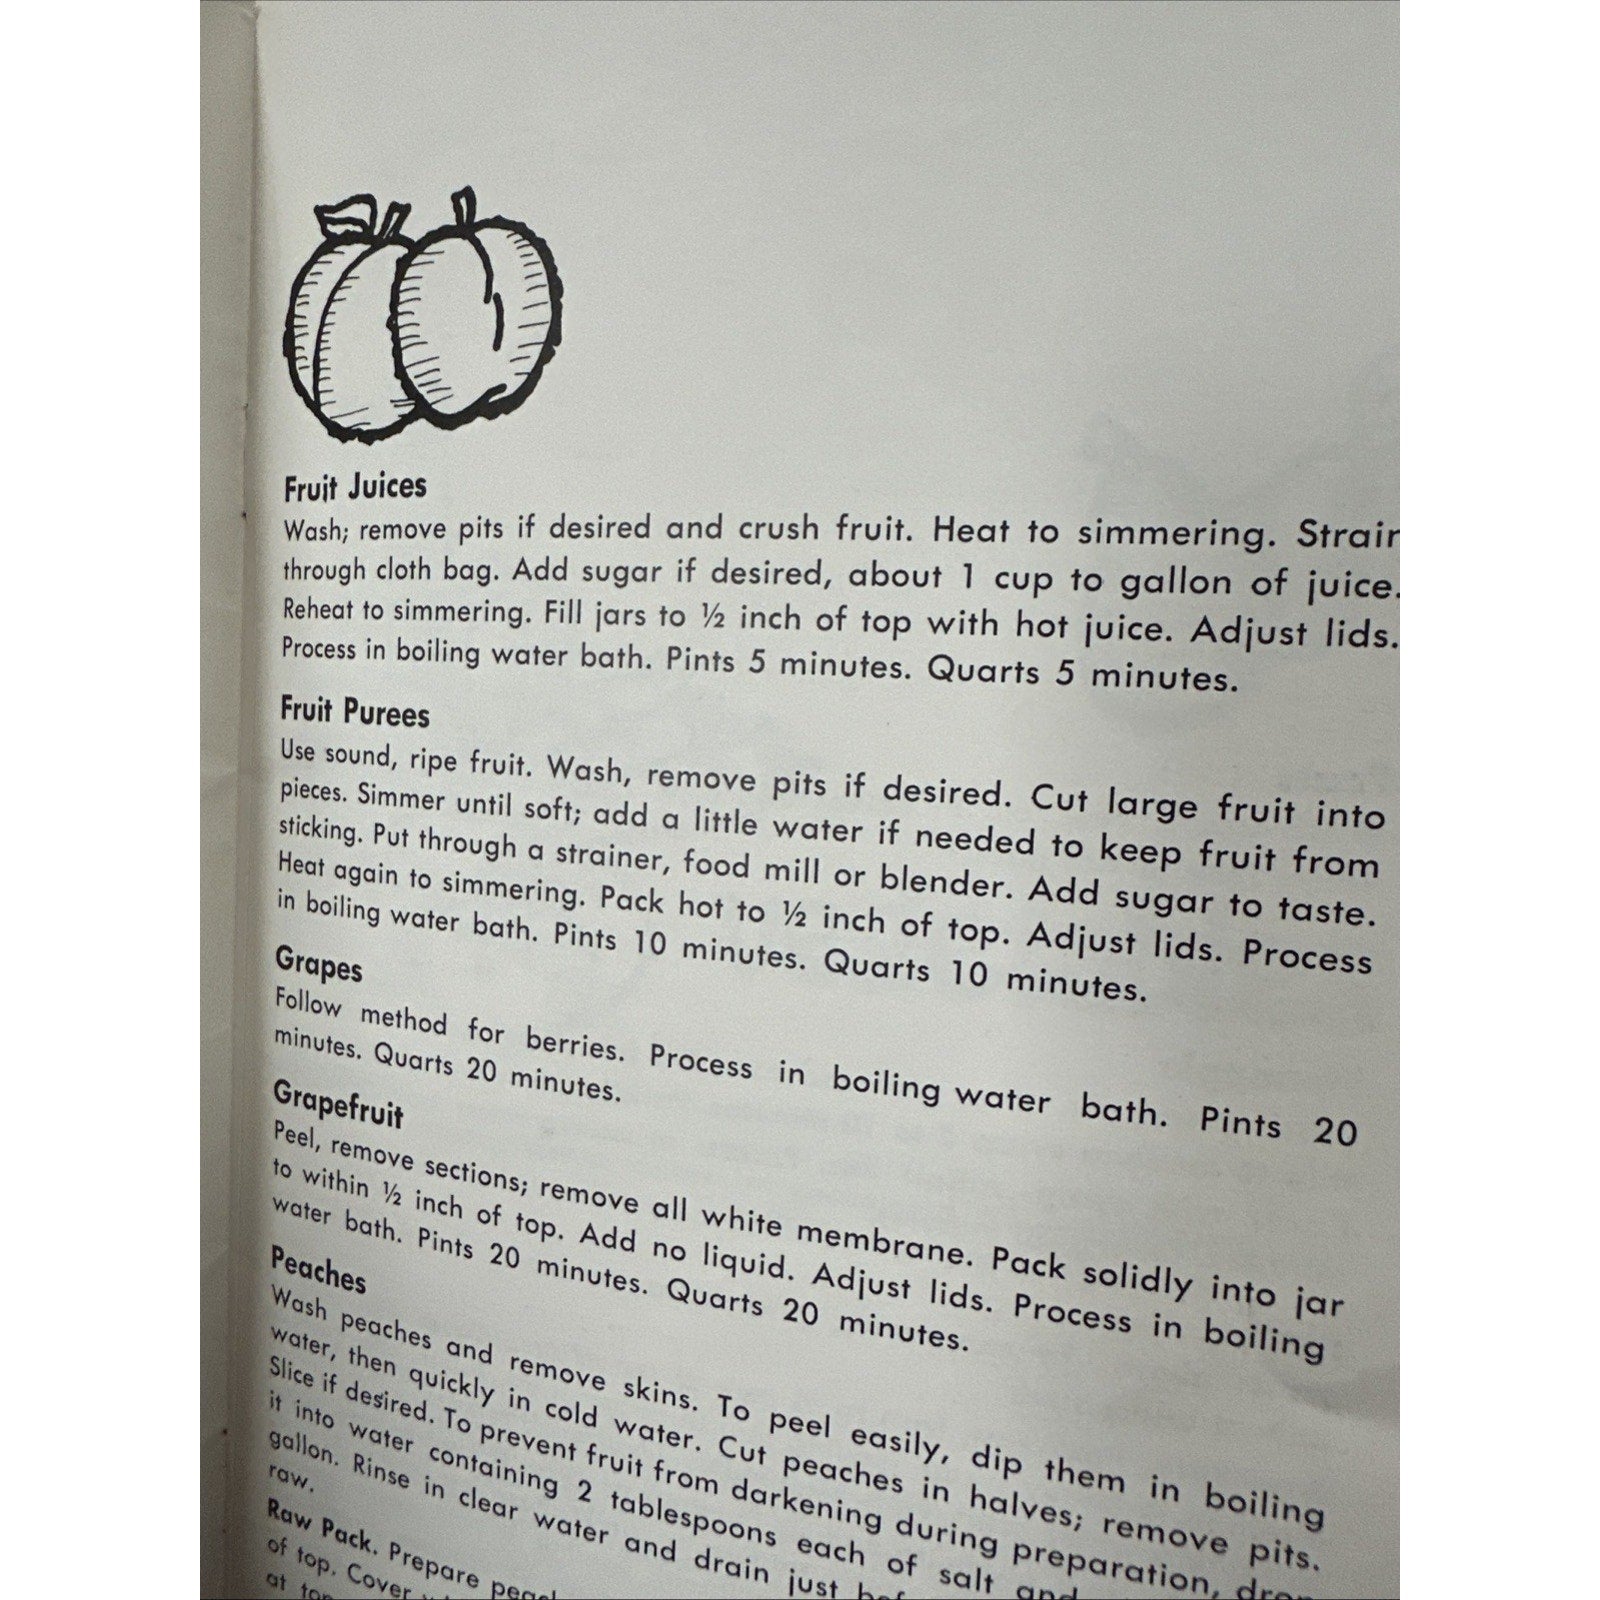 Fruit Juices
Wash; remove pits if desired and crush fruit. Heat to simmering.
through cloth bag. Add sugar if desired, about 1 cup to gallon of juice.
Reheat to simmering. Fill jars to ½ inch of top with hot juice. Adjust lids.
Process in boiling water bath. Pints 5 minutes. Quarts 5 minutes.
Fruit Purees
Use sound, ripe fruit. Wash, remove pits if desired. Cut large fruit into
pieces. Simmer until soft; add a little water if needed to keep fruit from
sticking. Put through a strainer, food mill or blender. Add sugar to taste.
Heat again to simmering. Pack hot to ½ inch of top. Adjust lids. Process
in boiling water bath. Pints 10 minutes. Quarts 10 minutes.
Grapes
Follow method for berries. Process in boiling water bath. Pints 20
minutes. Quarts 20 minutes.
Grapefruit
Peel, remove sections; remove all white membrane. Pack solidly into jar
to within ½ inch of top. Add no liquid. Adjust lids. Process in boiling
water bath. Pints 20 minutes. Quarts 20 minutes.
Peaches
Wash peaches and remove skins. To peel easily, dip them in boiling
water, then quickly in cold water. Cut peaches in halves; remove pits.
Slice if desired. To prevent fruit from darkening during preparation,
it into water containing 2 tablespoons each of salt and
gallon. Rinse in clear water and drain just
raw.
Raw Pack. Prepare
of top. Cover
at